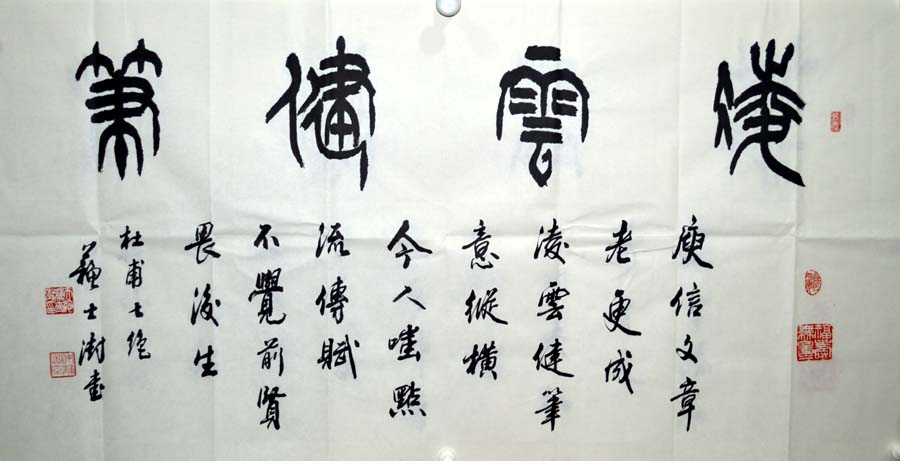 凌雲健筆
庾信文章
老更成
淩雲健筆
意縱橫
今人嗤點
流傳賦
不覺前賢
畏後生
杜甫七絶
蘇士澍書